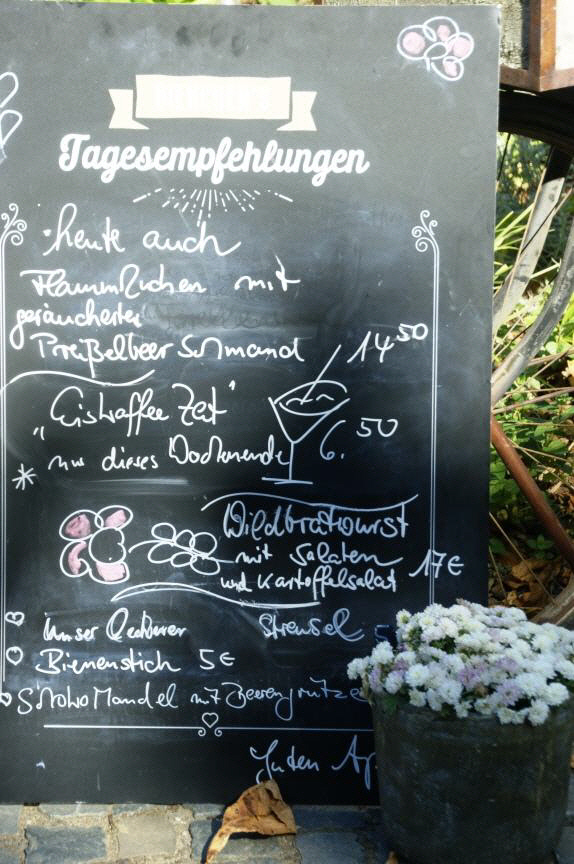 Tagesempfehlungen
heute auch
Flammkuchen mit
geräucherter
Preißelbeer Schmand 14 50
„Eiskaffee Zeit"
* nur dieses Wochenende 6. 50
Wildbratwurst
mit Salaten
und Kartoffelsalat 17€
unser Streusel 5
Bienenstich 5€
Mandel mit Beerengrütze
Guten Ap